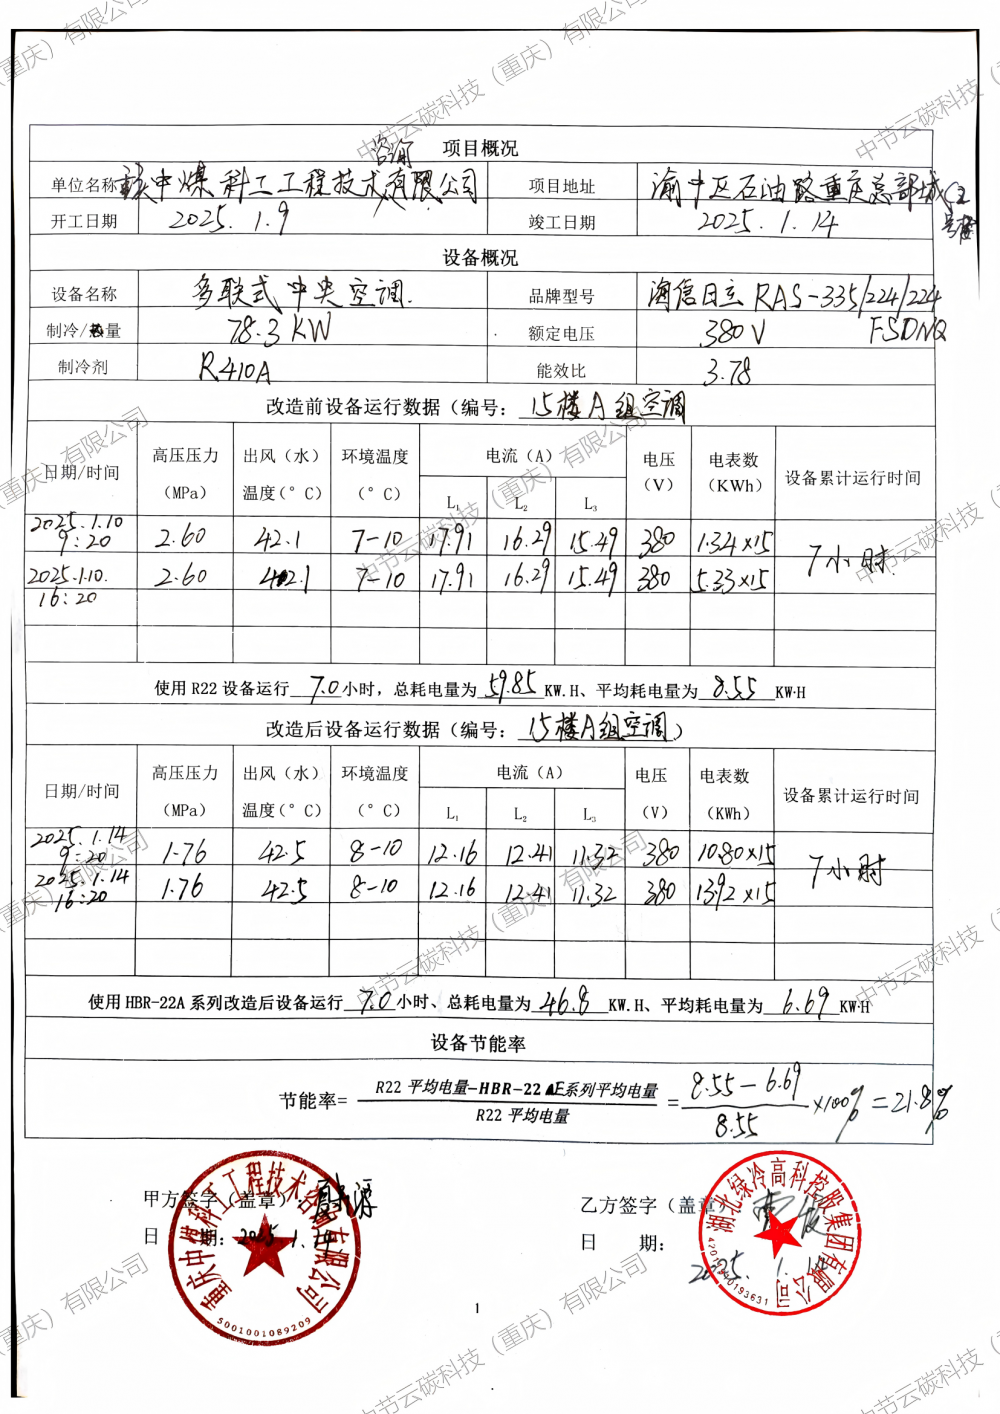 项目概况
单位名称 中煤科工工程技术咨询有限公司 项目地址 渝中区石油路重庆总部城C2号楼
开工日期 2025.1.9 竣工日期 2025.1.14
设备概况
设备名称 多联式中央空调 品牌型号 海信日立 RAS-335/224/224 FSDNQ
制冷/热量 78.3KW 额定电压 380V
制冷剂 R410A 能效比 3.78
改造前设备运行数据（编号： 15楼A组空调
日期/时间 高压压力（MPa） 出风（水）温度(°C) 环境温度(°C) 电流（A） 电压（V） 电表数（KWh） 设备累计运行时间
L₁ L₂ L₃
2025.1.10 9:20 2.60 42.1 7-10 17.91 16.29 15.49 380 1.34×15 7小时
2025.1.10. 16:20 2.60 42.1 7-10 17.91 16.29 15.49 380 5.33×15
使用 R22 设备运行 7.0 小时，总耗电量为 59.85 KW.H、平均耗电量为 8.55 KW·H
改造后设备运行数据（编号： 15楼A组空调）
日期/时间 高压压力（MPa） 出风（水）温度(°C) 环境温度(°C) 电流（A） 电压（V） 电表数（KWh） 设备累计运行时间
L₁ L₂ L₃
2025.1.14 9:20 1.76 42.5 8-10 12.16 12.41 11.32 380 10.80×15 7小时
2025.1.14 16:20 1.76 42.5 8-10 12.16 12.41 11.32 380 13.92×15
使用 HBR-22A 系列改造后设备运行 7.0 小时、总耗电量为 46.8 KW.H、平均耗电量为 6.69 KW·H
设备节能率
节能率= R22 平均电量-HBR-22 E系列平均电量 / R22 平均电量 = 8.55-6.69 / 8.55 ×100% =21.8%
甲方签字（盖章）： 乙方签字（盖章）
日 期： 2025.1.14 日 期： 2025.1.14
重庆中煤科工工程技术咨询有限公司
5001001089209
湖北绿冷高科控股集团有限公司
1
中节云碳科技（重庆）有限公司